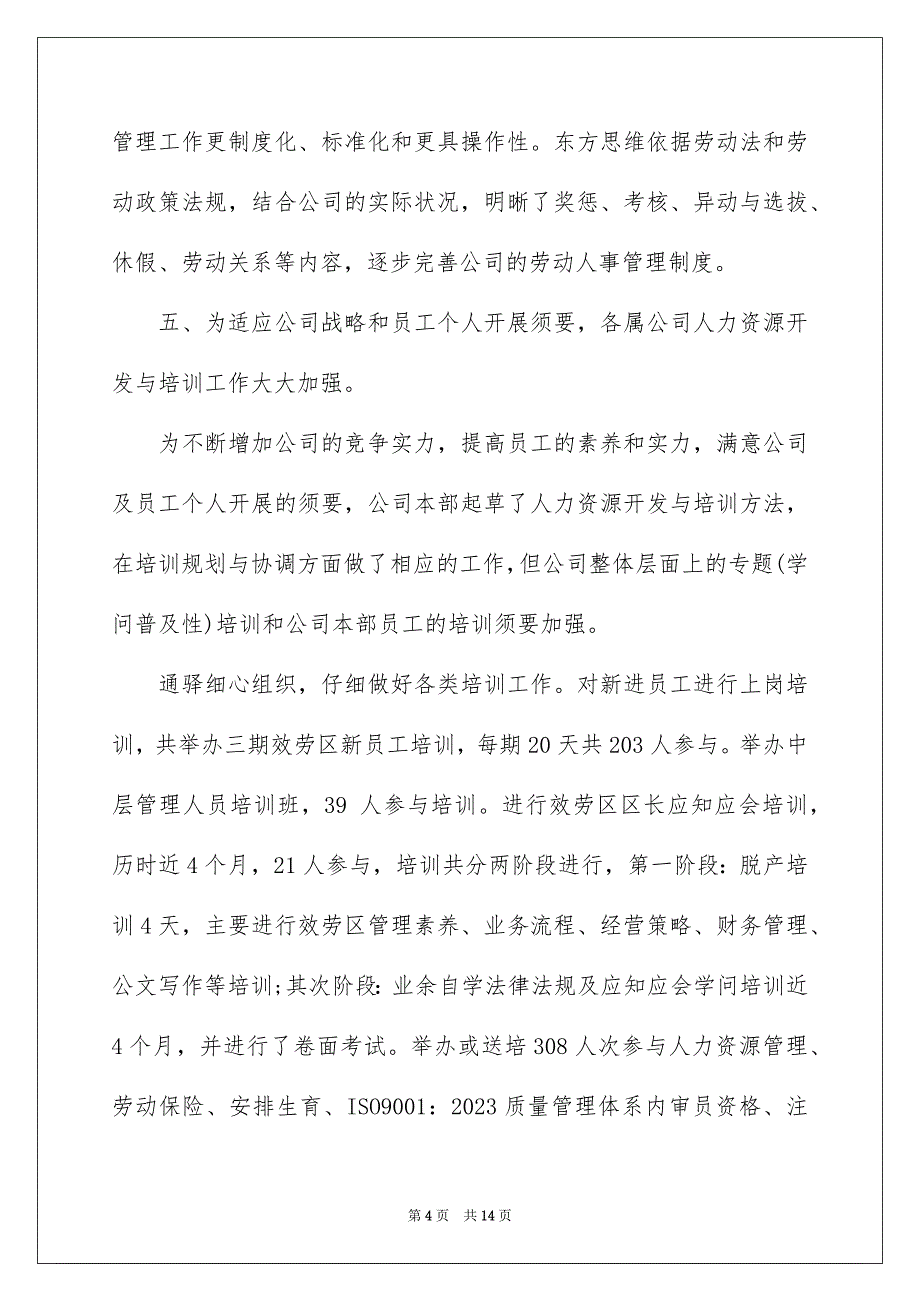 管理工作更制度化、标准化和更具操作性。东方思维依据劳动法和劳
动政策法规，结合公司的实际状况，明晰了奖惩、考核、异动与选拔、
休假、劳动关系等内容，逐步完善公司的劳动人事管理制度。
五、为适应公司战略和员工个人开展须要，各属公司人力资源开
发与培训工作大大加强。
为不断增加公司的竞争实力，提高员工的素养和实力，满意公司
及员工个人开展的须要，公司本部起草了人力资源开发与培训方法，
在培训规划与协调方面做了相应的工作,但公司整体层面上的专题(学
问普及性)培训和公司本部员工的培训须要加强。
通驿细心组织，仔细做好各类培训工作。对新进员工进行上岗培
训，共举办三期效劳区新员工培训，每期 20 天共 203 人参与。举办中
层管理人员培训班，39 人参与培训。进行效劳区区长应知应会培训，
历时近 4 个月，21 人参与，培训共分两阶段进行，第一阶段：脱产培
训 4 天，主要进行效劳区管理素养、业务流程、经营策略、财务管理、
公文写作等培训;其次阶段：业余自学法律法规及应知应会学问培训近
4 个月，并进行了卷面考试。举办或送培 308 人次参与人力资源管理、
劳动保险、安排生育、ISO9001：2023 质量管理体系内审员资格、注
第 4 页 共 14 页